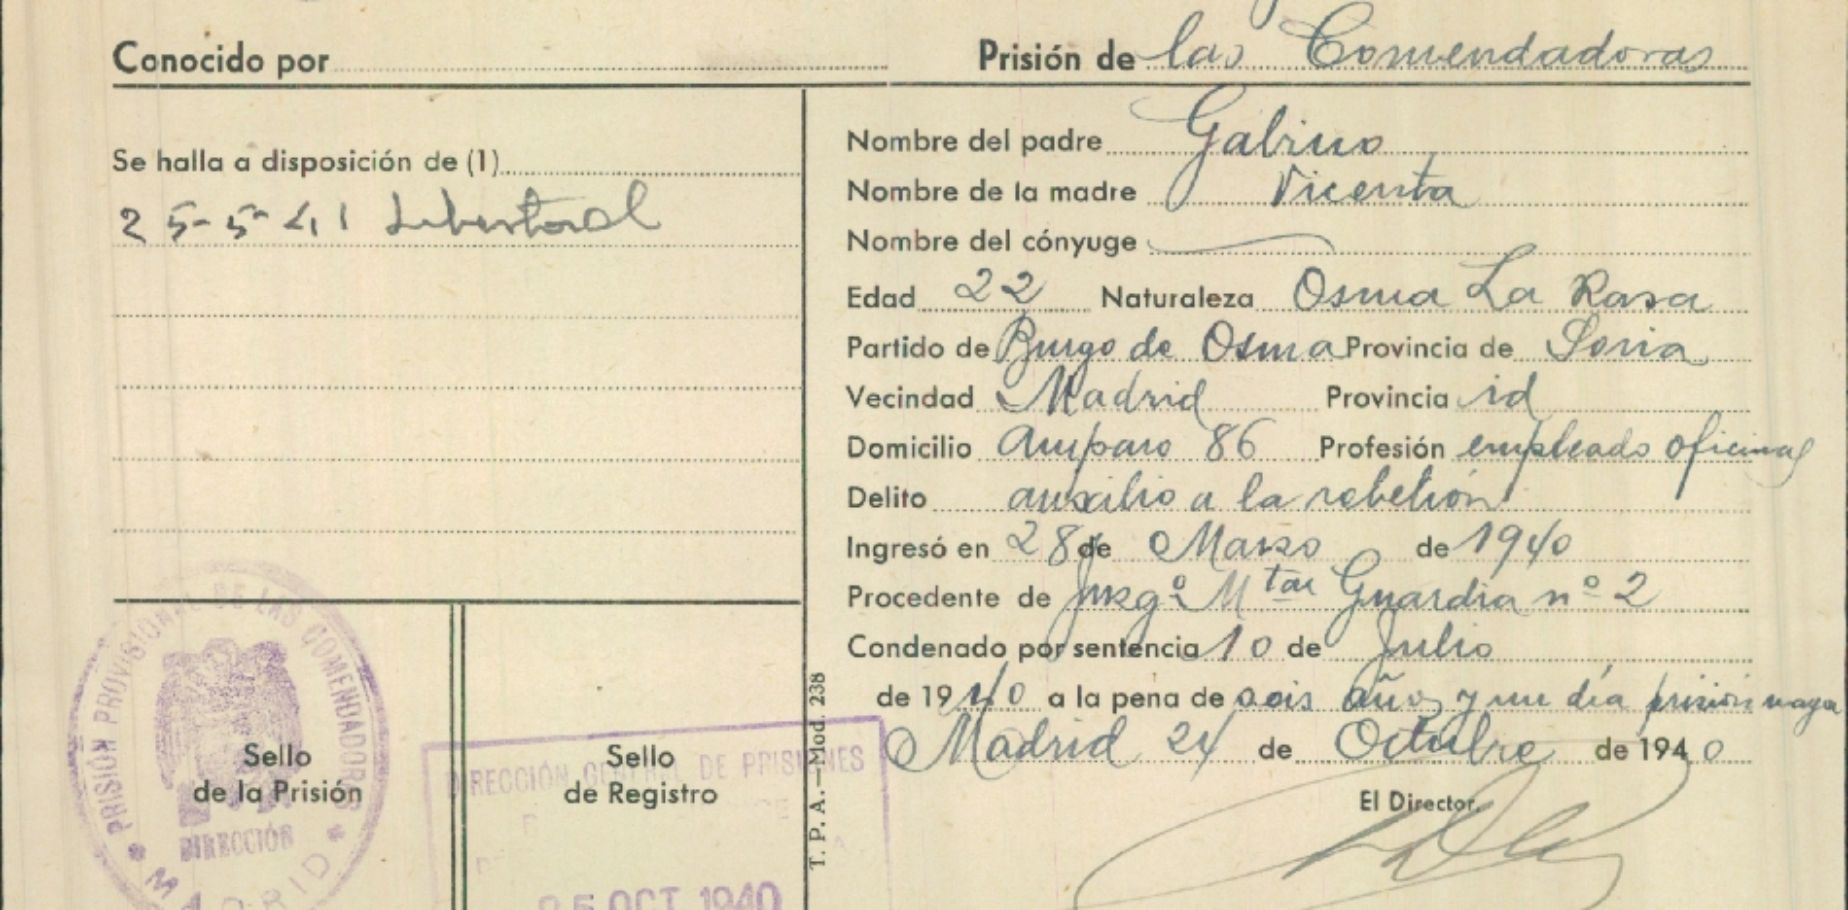 Conocido por Prisión de las Comendadoras
Se halla a disposición de (1)
25-5-41 Libertad
Nombre del padre Gabino
Nombre de la madre Vicenta
Nombre del cónyuge
Edad 22 Naturaleza Osma La Rasa
Partido de Burgo de Osma Provincia de Soria
Vecindad Madrid Provincia id
Domicilio Amparo 86 Profesión empleado oficinas
Delito auxilio a la rebelión
Ingresó en 28 de Marzo de 1940
Procedente de Juzgº Mtar Guardia nº 2
Condenado por sentencia 10 de Julio
de 1940 a la pena de seis años y un día prisión mayor
Madrid 24 de Octubre de 1940
El Director,
T. P. A.—Mod. 238
Sello
de la Prisión
PRISIÓN PROVISIONAL DE LAS COMENDADORAS
DIRECCIÓN
* MADRID *
Sello
de Registro
DIRECCIÓN GENERAL DE PRISIONES
25 OCT 1940